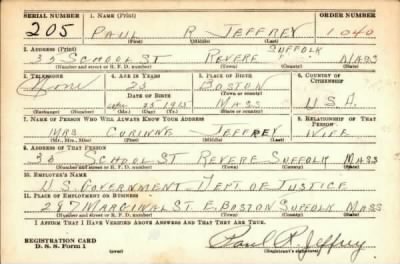 SERIAL NUMBER 1. NAME (Print) ORDER NUMBER
205 PAUL R JEFFREY 1040
(First) (Middle) (Last)
2. ADDRESS (Print)
33 SCHOOL ST REVERE SUFFOLK MASS
(Number and street or R. F. D. number) (Town) (County) (State)
3. TELEPHONE 4. AGE IN YEARS 5. PLACE OF BIRTH 6. COUNTRY OF CITIZENSHIP
BOSTON
DATE OF BIRTH (Town or county)
25 1915 MASS U.S.A.
(Mo.) (Day) (Yr.) (State or country)
7. NAME OF PERSON WHO WILL ALWAYS KNOW YOUR ADDRESS 8. RELATIONSHIP OF THAT PERSON
MRS CORINNE JEFFREY WIFE
(Mr., Mrs., Miss) (First) (Middle) (Last)
9. ADDRESS OF THAT PERSON
33 SCHOOL ST REVERE SUFFOLK MASS
(Number and street or R. F. D. number) (Town) (County) (State)
10. EMPLOYER'S NAME
U.S. GOVERNMENT DEPT OF JUSTICE
11. PLACE OF EMPLOYMENT OR BUSINESS
287 MARGINAL ST E. BOSTON SUFFOLK MASS
(Number and street or R. F. D. number) (Town) (County) (State)
I AFFIRM THAT I HAVE VERIFIED ABOVE ANSWERS AND THAT THEY ARE TRUE.
REGISTRATION CARD
D. S. S. Form 1 (over) Paul R. Jeffrey
(Registrant's signature)